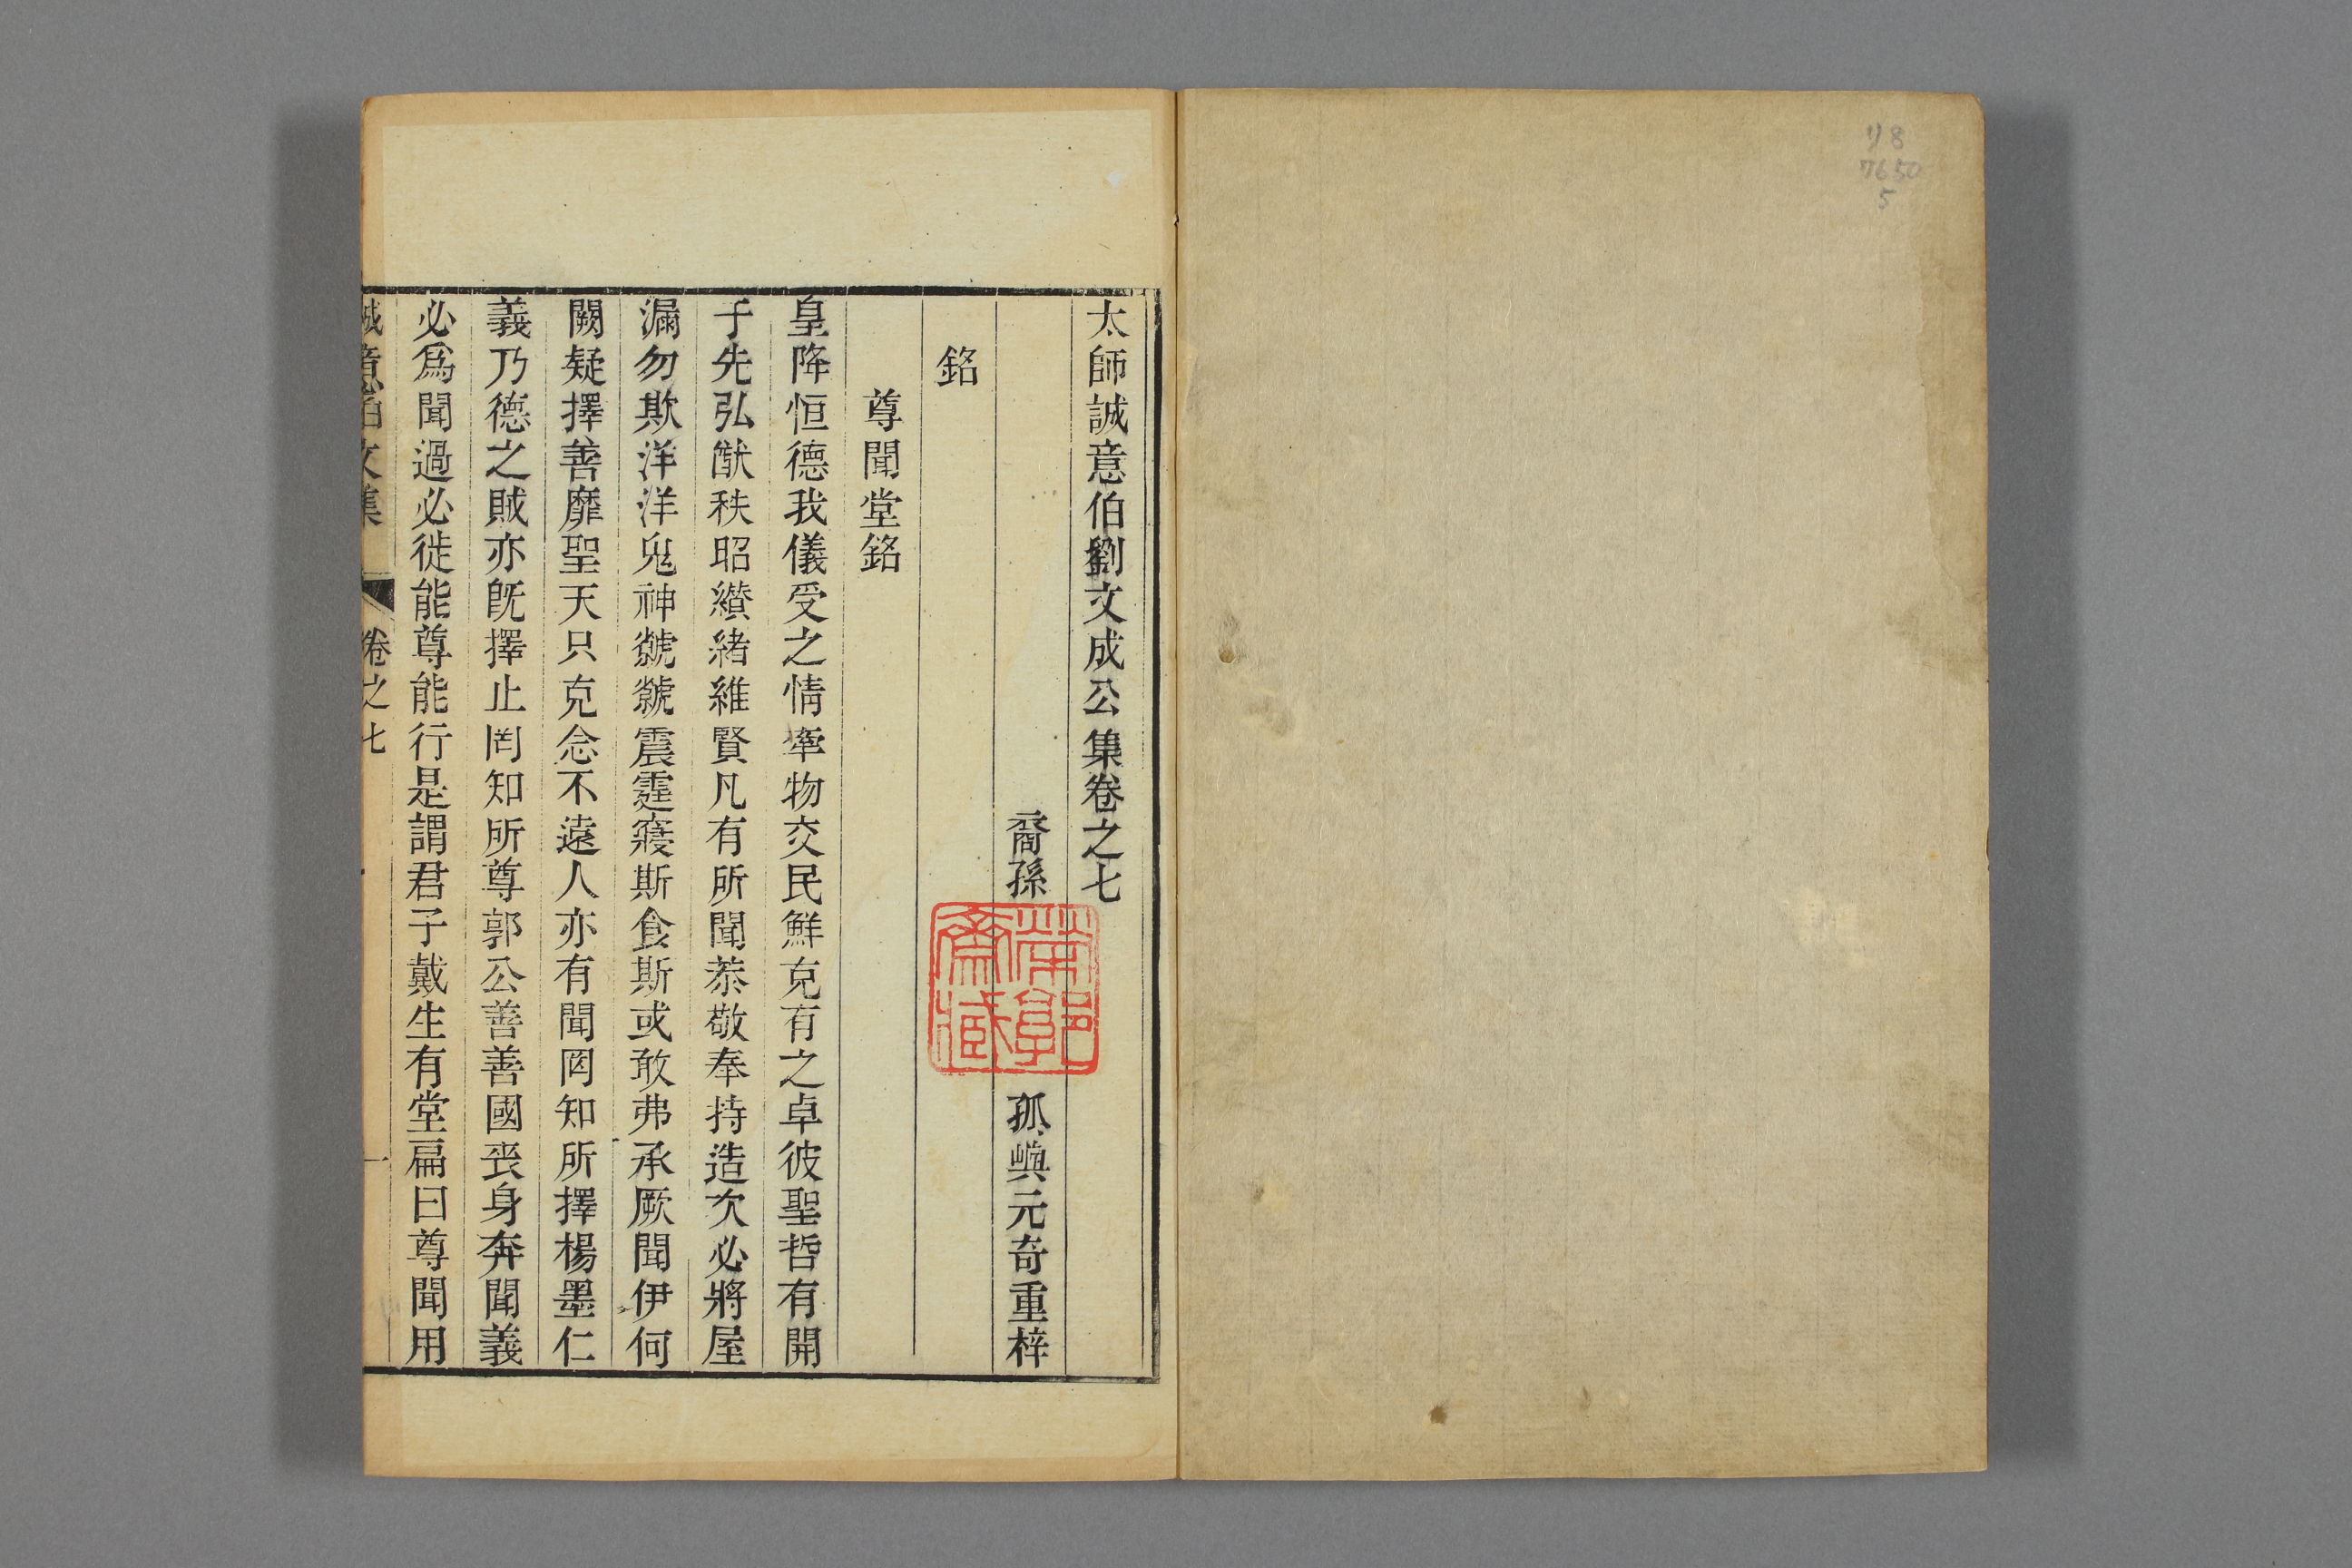 ﾘ8
7650
5
太師誠意伯劉文成公集卷之七
裔孫 孤嶼元奇重梓
銘
尊聞堂銘
皇降恒德我儀受之情牽物交民鮮克有之卓彼聖哲有開
于先弘猷秩昭纘緒維賢凡有所聞恭敬奉持造次必將屋
漏勿欺洋洋鬼神虩虩震霆寢斯食斯或敢弗承厥聞伊何
闕疑擇善靡聖天只克念不遠人亦有聞罔知所擇楊墨仁
義乃德之賊亦既擇止罔知所尊郭公善善國喪身奔聞義
必爲聞過必徙能尊能行是謂君子戴生有堂扁曰尊聞用
誠意伯文集 卷之七 一